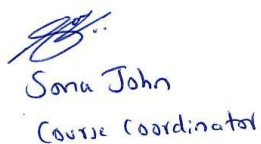 Sonu John
Course Coordinator